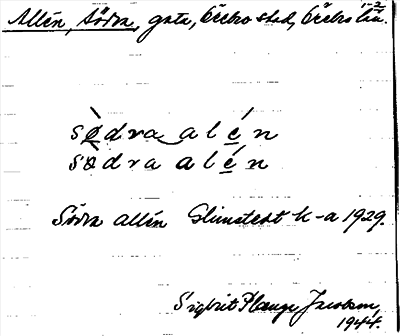 Allén, Södra, gata, Örebro stad, Örebro län.
sødra alén
södra alén
Södra allén Glimstedt K-a 1929.
Sigbrit Plange Jacobson
1944.